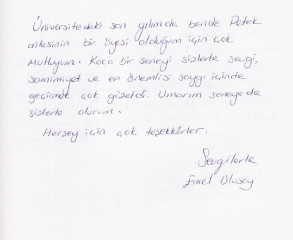 Üniversitedeki son yılımda bende Petek
ailesinin bir üyesi olduğum için çok
mutluyum. Koca bir seneyi sizlerle sevgi,
samimiyet ve en önemlisi saygı içinde
geçirmek çok güzeldi. Umarım seneye de
sizlerle olurum.
Herşey için çok teşekkürler.
Sevgilerle
Emel Ulusoy